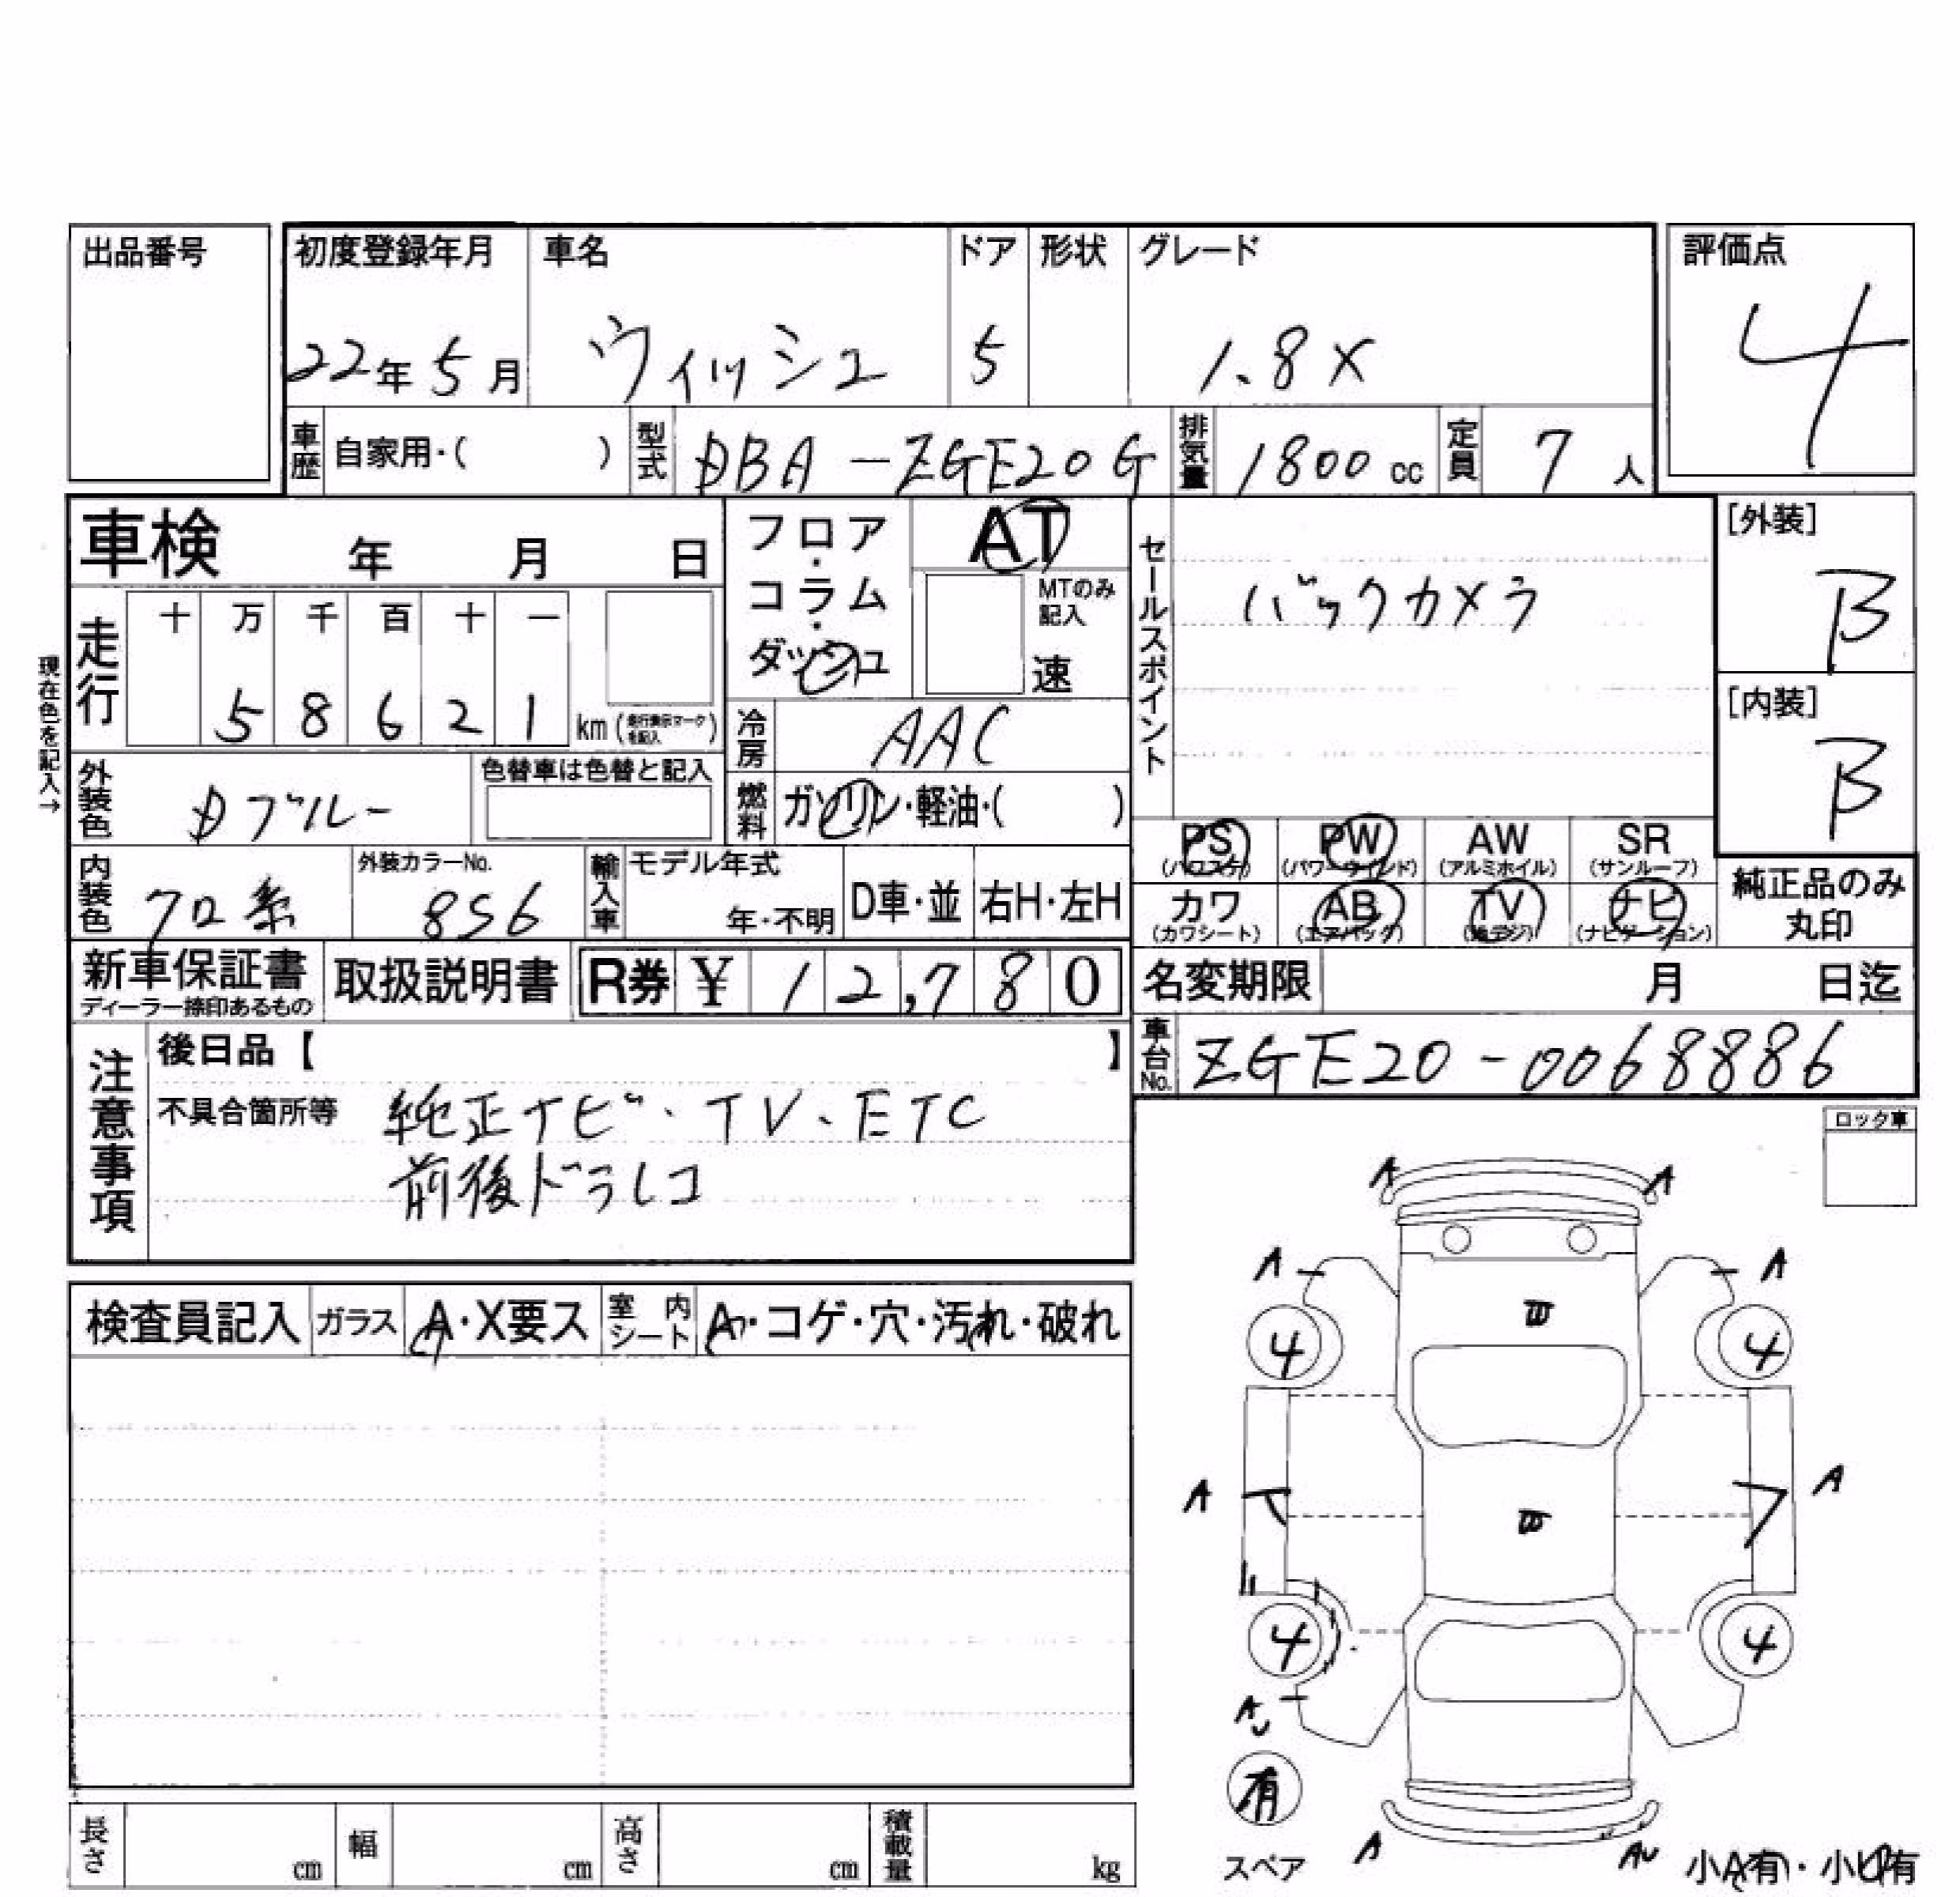 出品番号
初度登録年月 車名 ドア 形状 グレード 評価点
22年 5月 ウィッシュ 5 1.8X 4
車歴 自家用・( ) 型式 DBA-ZGE20G 排気量 1800 cc 定員 7 人
車検 年 月 日
フロア・コラム・ダッシュ AT
MTのみ記入 速
セールスポイント バックカメラ
[外装] B
[内装] B
現在色を記入→
走行 十 万 千 百 十 一
5 8 6 2 1 km (走行表示マークを記入)
冷房 AAC
外装色 Dブルー 色替車は色替と記入
燃料 ガソリン・軽油・( )
PS (パワステ) PW (パワーウインド) AW (アルミホイル) SR (サンルーフ)
カワ (カワシート) AB (エアバッグ) TV (地デジ) ナビ (ナビゲーション)
純正品のみ丸印
内装色 クロ系 外装カラーNo. 8S6 輸入車 モデル年式 年・不明 D車・並 右H・左H
新車保証書 ディーラー捺印あるもの 取扱説明書 R券 ¥ 12,780 名変期限 月 日迄
車台No. ZGE20-0068886
注意事項 後日品【 】
不具合箇所等 純正ナビ・TV、ETC
前後ドラレコ
ロック車
検査員記入 ガラス A・X要ス 室内シート A・コゲ・穴・汚れ・破れ
A A
A A
4 4
A A
4 4
AU
有
スペア A AU 小A有・小U有
長さ cm 幅 cm 高さ cm 積載量 kg